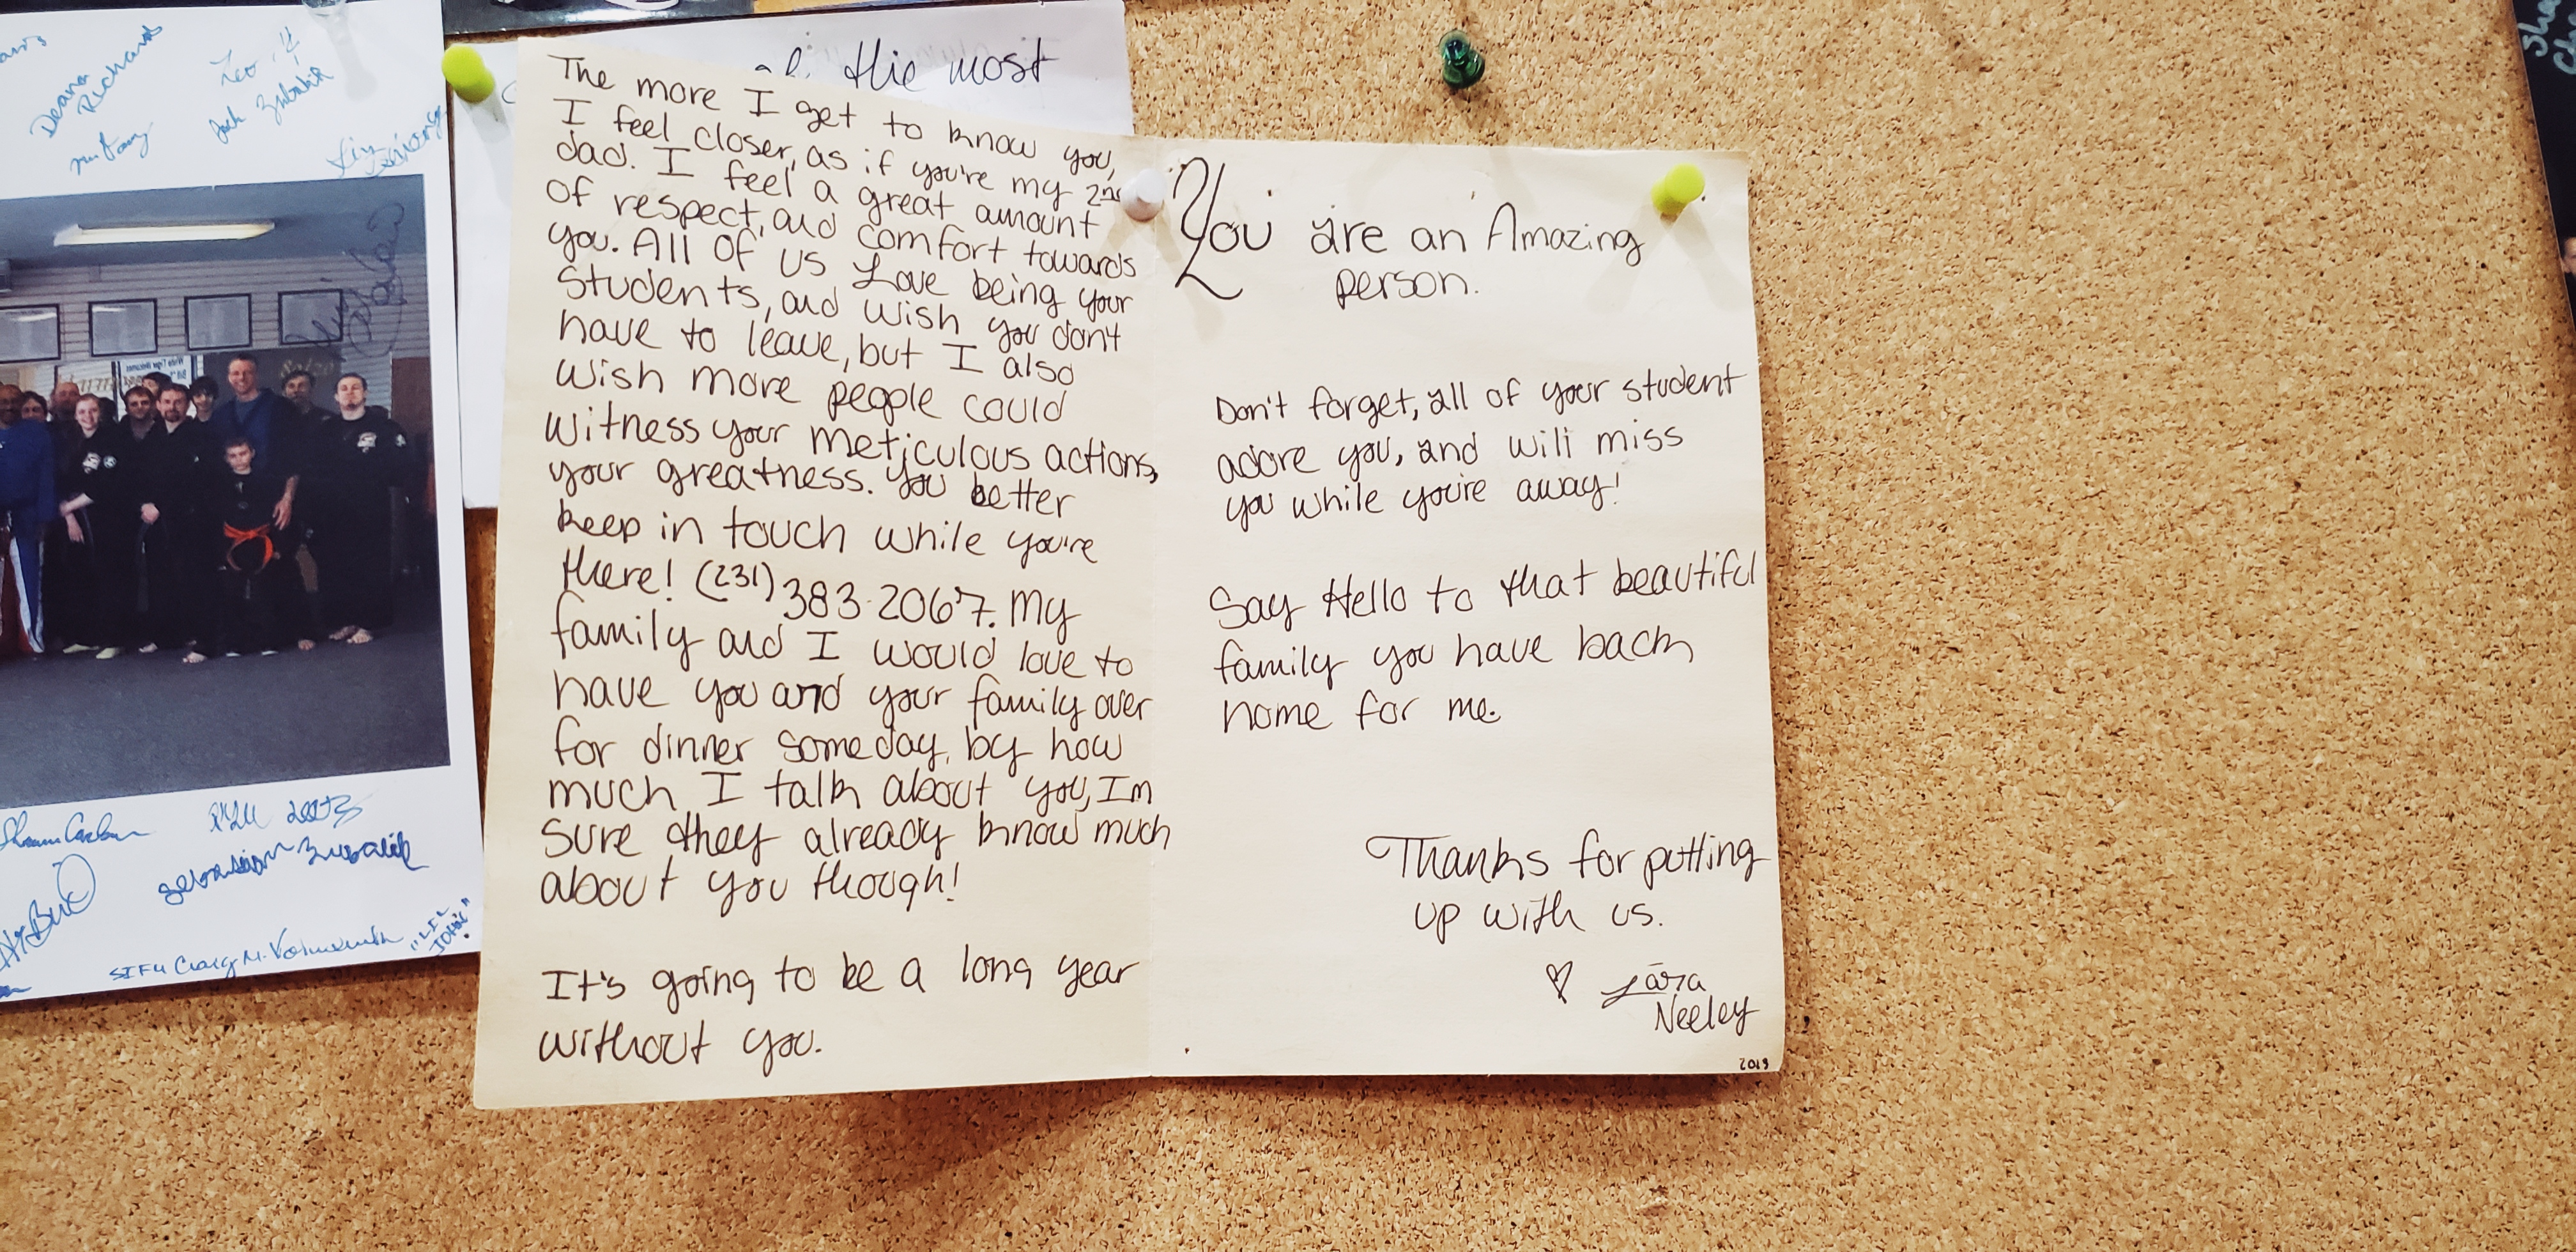 Deana
Richards
Leo
Zubalik
the most
The more I get to know you,
I feel closer, as if you're my 2nd
dad. I feel a great amount
of respect, and comfort towards
you. All of us Love being your
students, and wish you dont
have to leave, but I also
wish more people could
witness your meticulous actions,
your greatness. You better
keep in touch while you're
there! (231) 383-2067. My
family and I would love to
have you and your family over
for dinner someday, by how
much I talk about you, Im
sure they already know much
about you though!
It's going to be a long year
without you.
You are an Amazing
person.
Don't forget, all of your student
adore you, and will miss
you while you're away!
Say Hello to that beautiful
family you have back
home for me.
Thanks for putting
up with us.
♡ Lāra
Neeley
2013
Sebastian Zubalik
SIFU Craig M.
"LIL
JOHN"